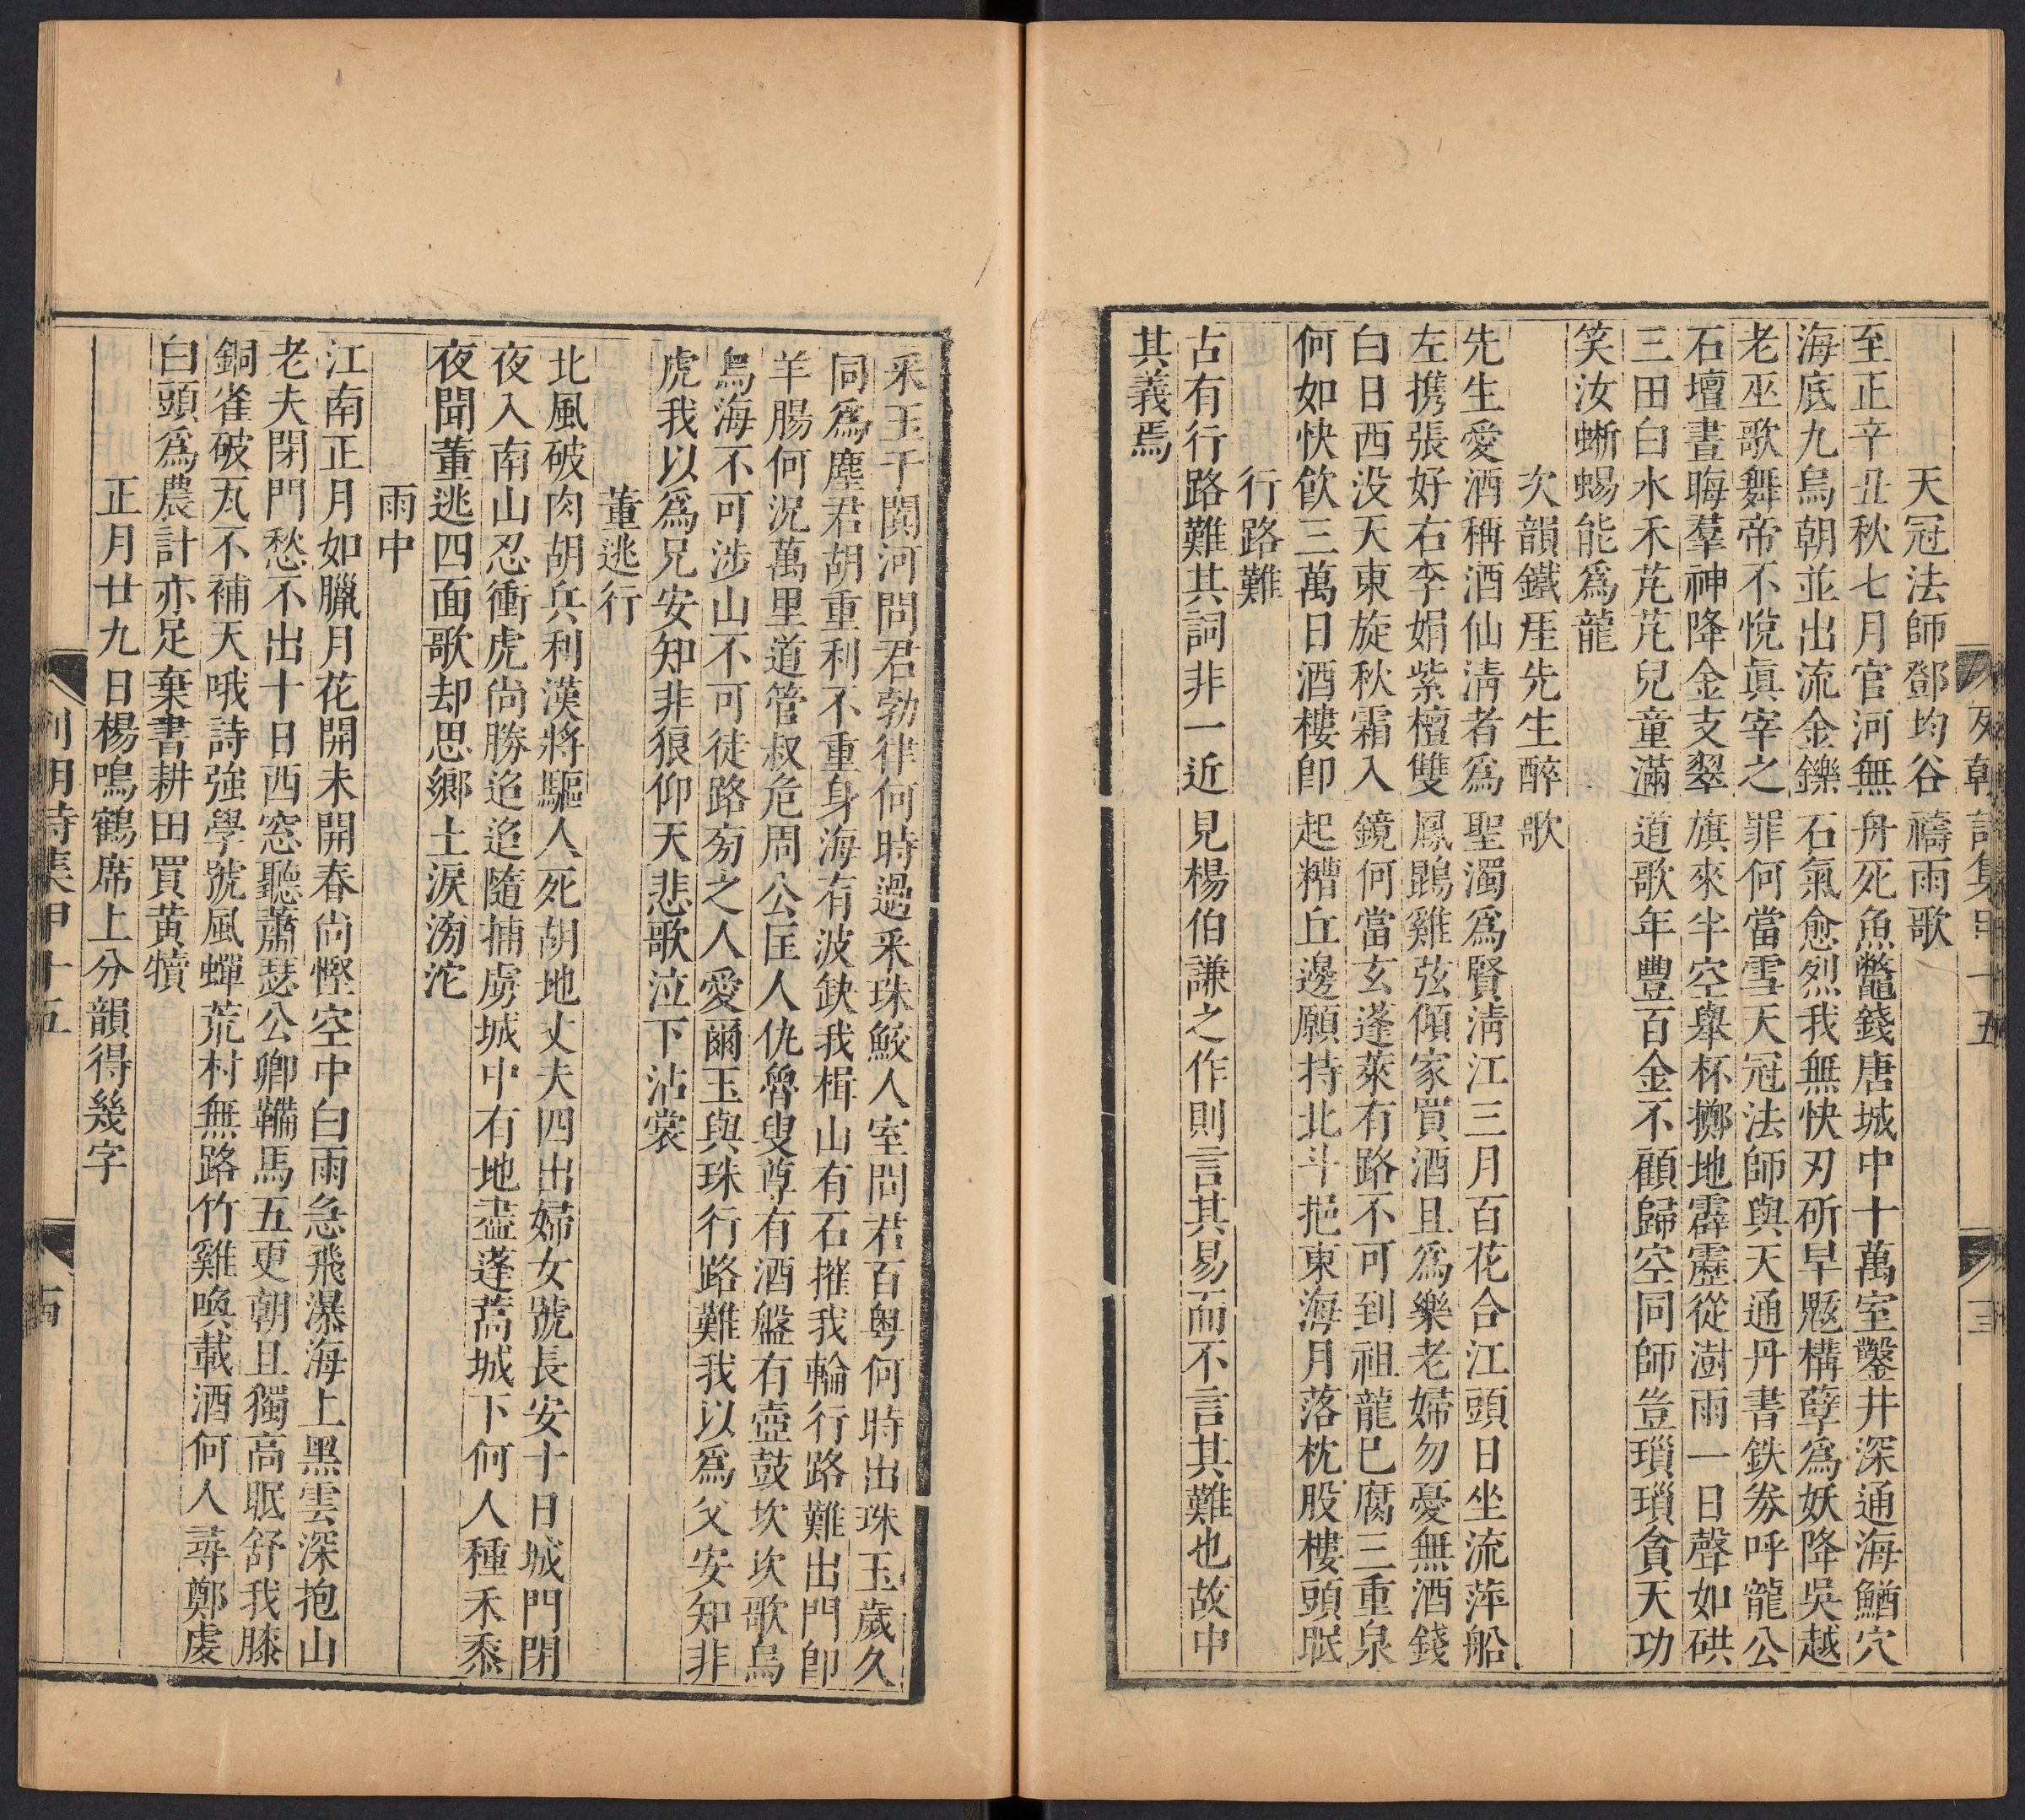 列朝詩集甲十五
十三
天冠法師鄧均谷禱雨歌
至正辛丑秋七月官河無舟死魚鼈錢唐城中十萬室鑿井深通海鰌穴
海底九烏朝並出流金鑠石氣愈烈我無快刃斫旱魃構孽爲妖降吳越
老巫歌舞帝不悅眞宰之罪何當雪天冠法師與天通丹書鉄券呼龍公
石壇晝晦羣神降金支翠旗來半空舉杯擲地霹靂從澍雨一日聲如硔
三田白水禾芃芃兒童滿道歌年豐百金不顧歸空同師豈瑣瑣貪天功
笑汝蜥蜴能爲龍
次韻鐵厓先生醉歌
先生愛酒稱酒仙淸者爲聖濁爲賢淸江三月百花合江頭日坐流萍船
左携張好右李娟紫檀雙鳳鵾雞弦傾家買酒且爲樂老婦勿憂無酒錢
白日西没天東旋秋霜入鏡何當玄蓬萊有路不可到祖龍已腐三重泉
何如快飮三萬日酒樓卽起糟丘邊願持北斗挹東海月落枕股樓頭眠
行路難
古有行路難其詞非一近見楊伯謙之作則言其易而不言其難也故申
其義焉
采玉于闐河問君勃律何時過采珠鮫人室問君百粤何時出珠玉歲久
同爲塵君胡重利不重身海有波鈌我楫山有石摧我輪行路難出門卽
羊腸何況萬里道管叔危周公匡人仇魯叟尊有酒盤有壺鼓坎坎歌烏
烏海不可涉山不可徒路旁之人愛爾玉與珠行路難我以爲父安知非
虎我以爲兄安知非狼仰天悲歌泣下沾裳
董逃行
北風破肉胡兵利漢將驅人死胡地丈夫四出婦女號長安十日城門閉
夜入南山忍衝虎尚勝追追隨捕虜城中有地盡蓬蒿城下何人種禾黍
夜聞董逃四面歌却思鄉土淚滂沱
雨中
江南正月如臘月花開未開春尚慳空中白雨急飛瀑海上黑雲深抱山
老夫閉門愁不出十日西窓聽蕭瑟公卿鞴馬五更朝且獨高眠舒我膝
銅雀破瓦不補天哦詩強學號風蟬荒村無路竹雞喚載酒何人尋鄭虔
白頭爲農計亦足棄書耕田買黃犢
正月廿九日楊鳴鶴席上分韻得幾字
列朝詩集甲十五
十四